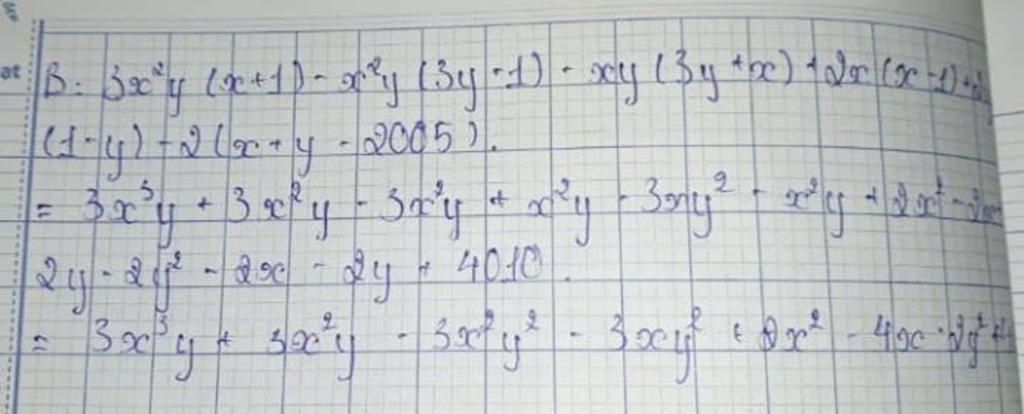 B = 3x²y (x+1) - x²y (3y-1) - xy (3y+x) + 2x (x-1) +
(1-y) - 2 (x+y - 2005).
= 3x³y + 3x²y - 3x²y + x²y - 3xy² - x²y + 2x² -
2y - 2y² - 2x - 2y + 4010.
= 3x³y + 3x²y - 3x²y² - 3xy² + 2x² - 4x - 2y² +